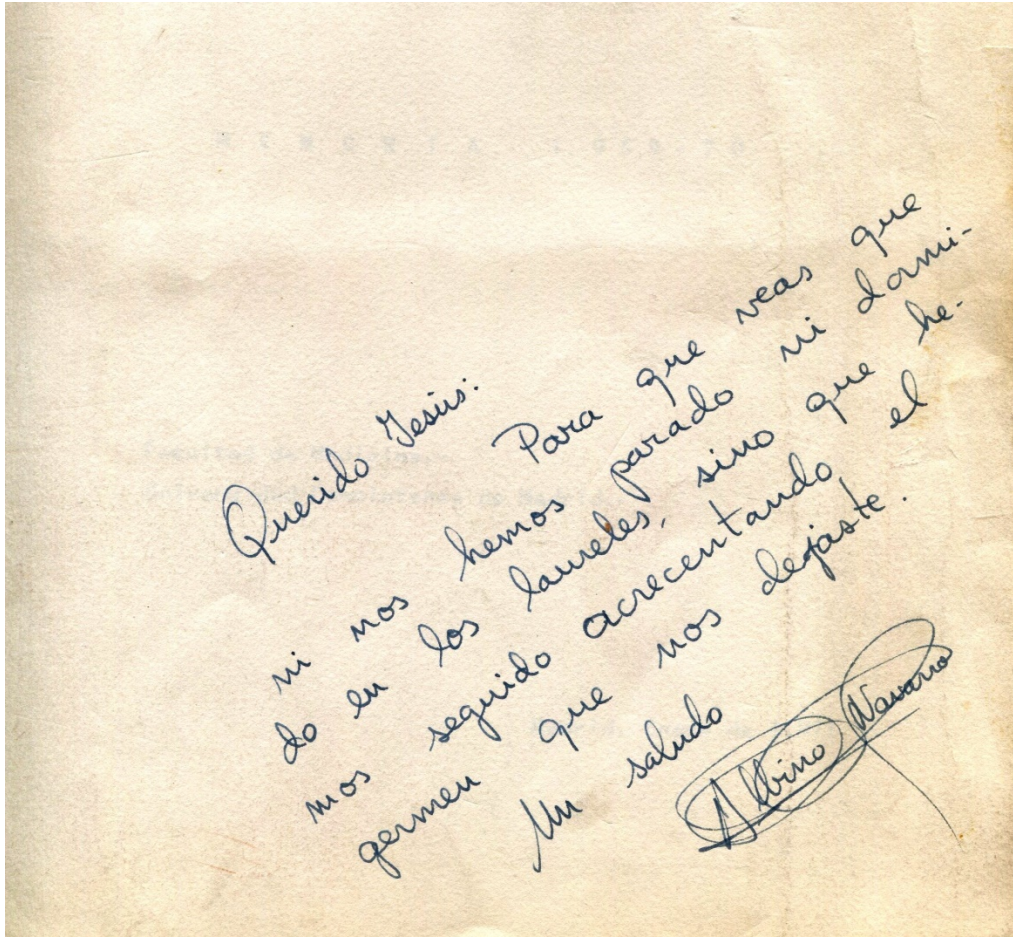 Querido Jesús:
Para que veas que
ni nos hemos parado ni dormi-
do en los laureles, sino que he-
mos seguido acrecentando el
germen que nos dejaste.
Un saludo
Albino Navarro